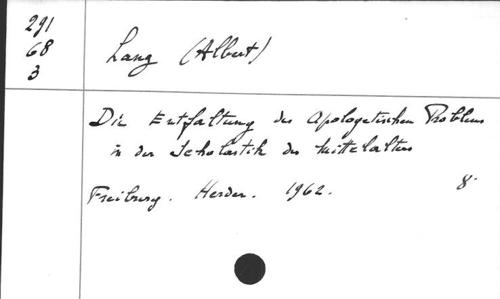 291
68
3
Lang (Albert)
Die Entfaltung des Apologetischen Problems
in der Scholastik des Mittelalters
Freiburg. Herder. 1962. 8°